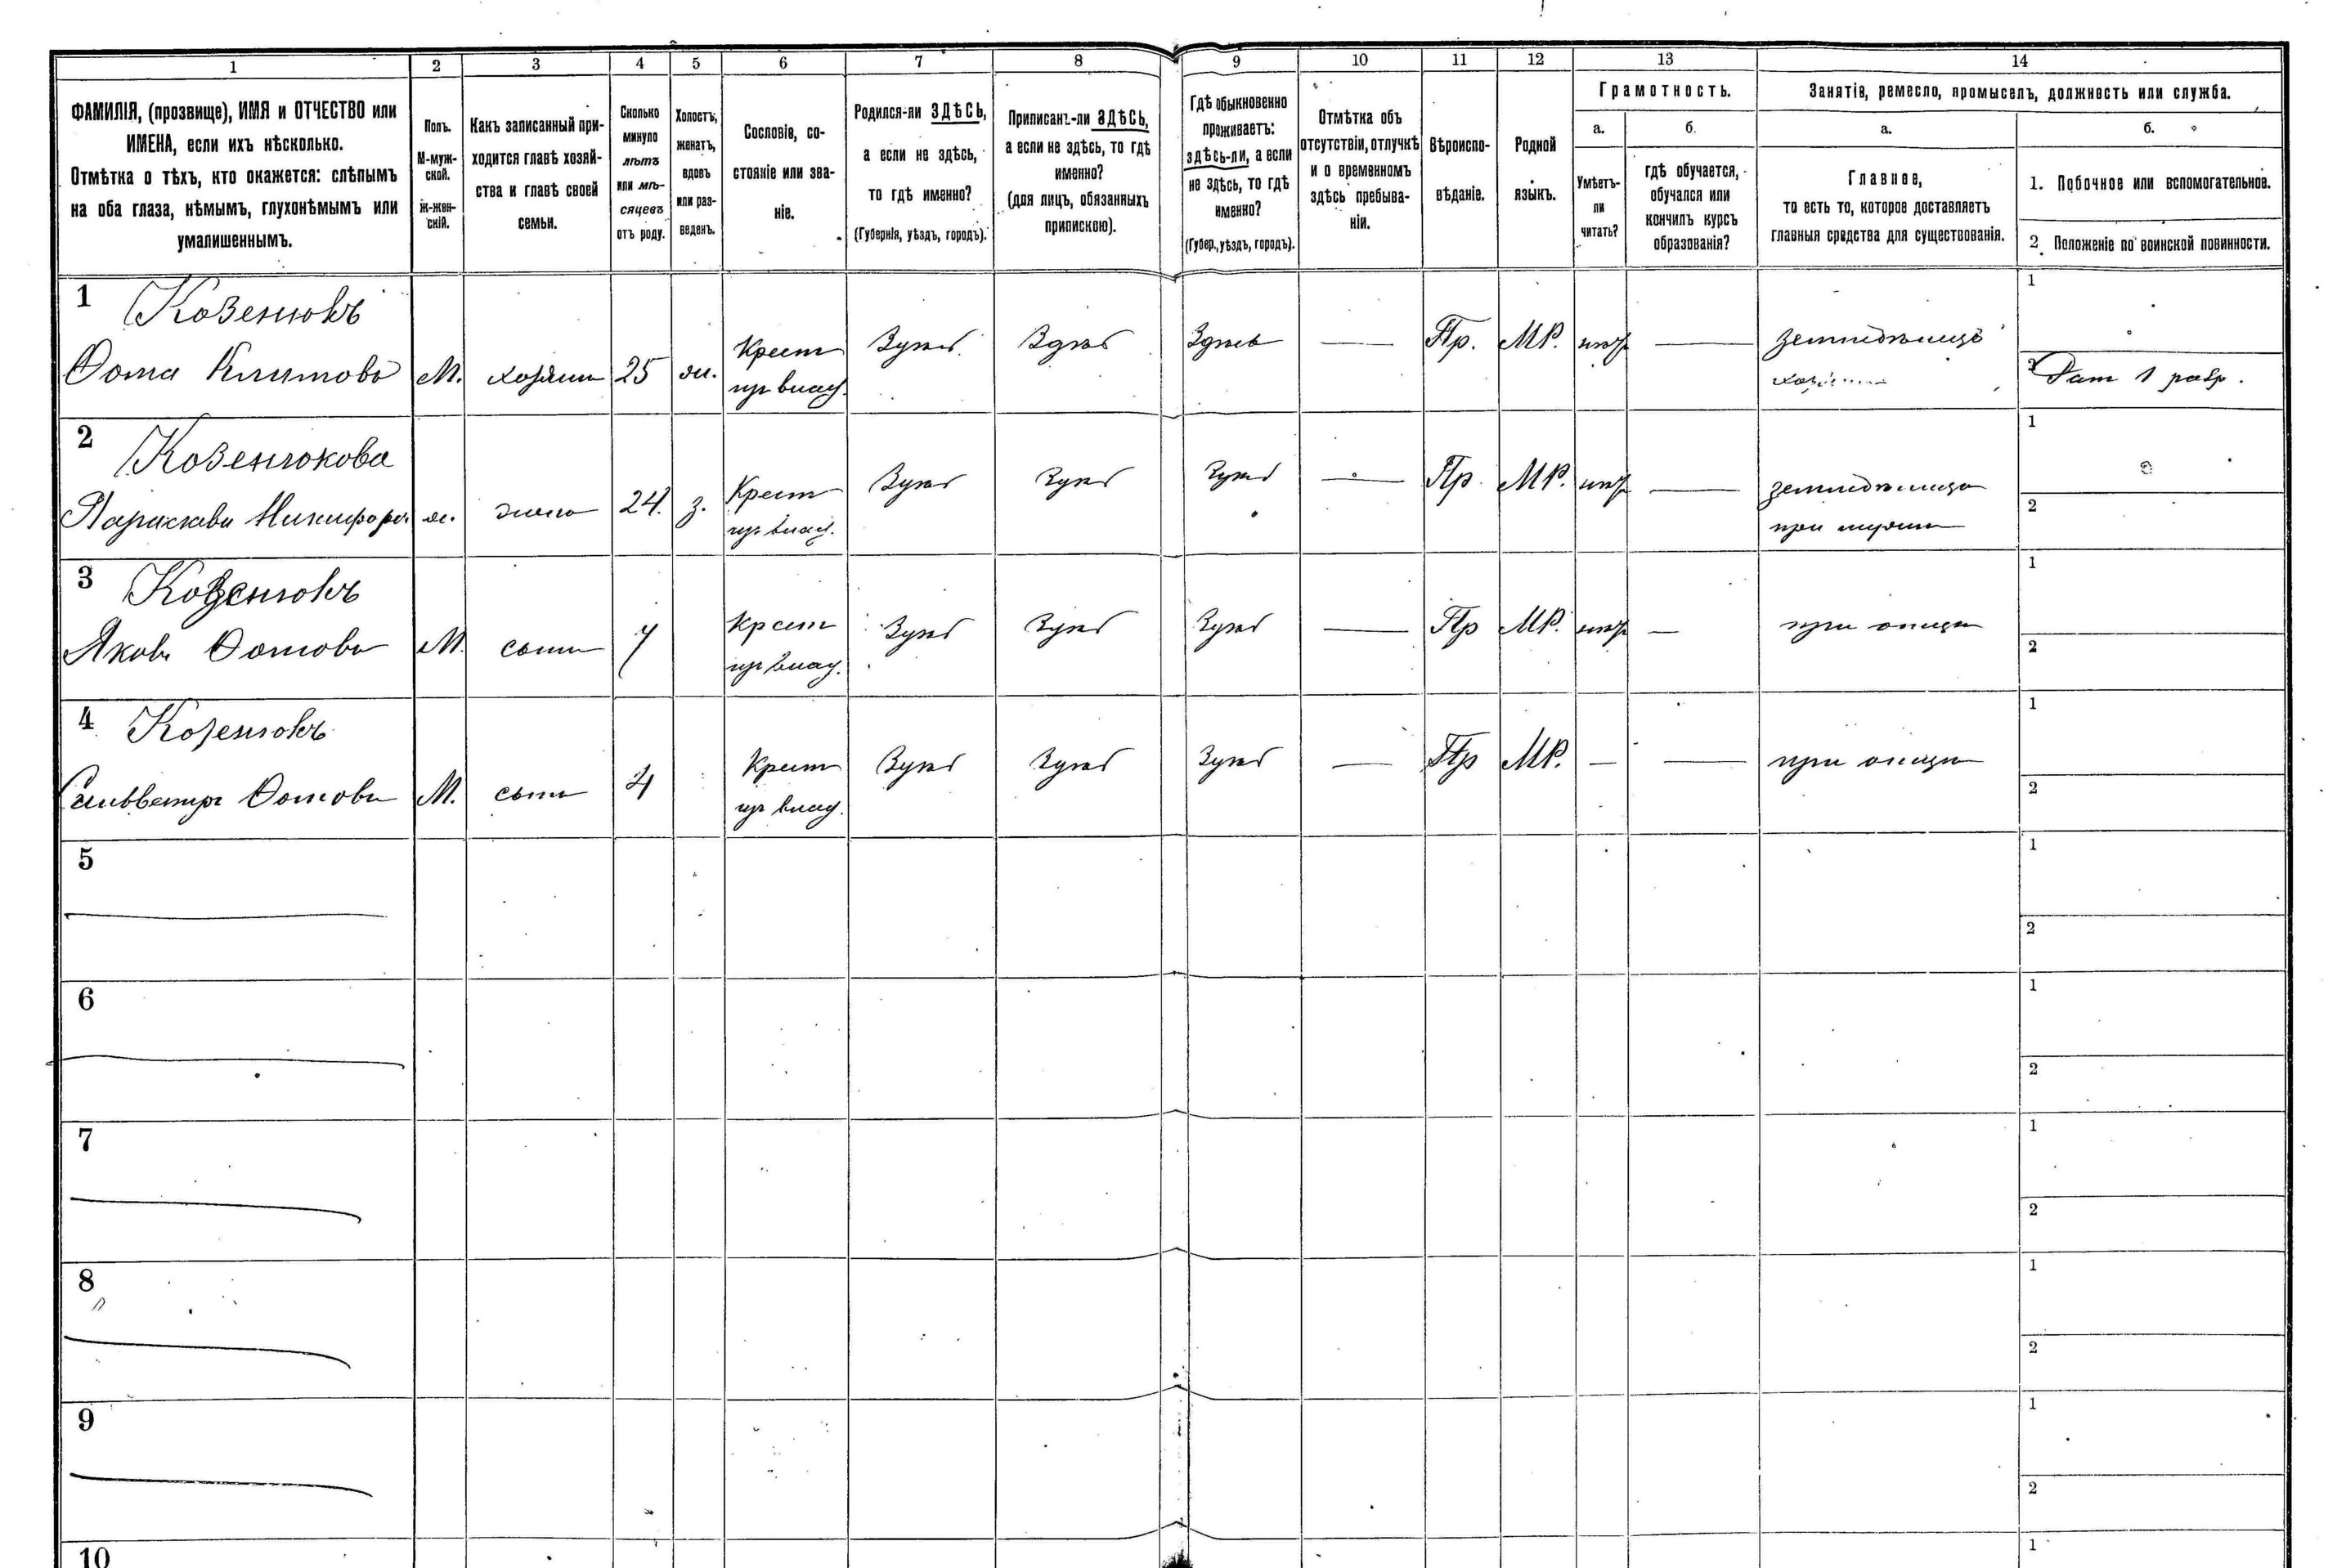 1 2 3 4 5 6 7 8 9 10 11 12 13 14
ФАМИЛІЯ, (прозвище), ИМЯ и ОТЧЕСТВО или
ИМЕНА, если ихъ нѣсколько.
Отмѣтка о тѣхъ, кто окажется: слѣпымъ
на оба глаза, нѣмымъ, глухонѣмымъ или
умалишеннымъ.
Полъ.
М-муж-
ской.
Ж-жен-
скій.
Какъ записанный при-
ходится главѣ хозяй-
ства и главѣ своей
семьи.
Сколько
минуло
лѣтъ
или мѣ-
сяцевъ
отъ роду.
Холостъ,
женатъ,
вдовъ
или раз-
веденъ.
Сословіе, со-
стояніе или зва-
ніе.
Родился-ли ЗДѢСЬ,
а если не здѣсь,
то гдѣ именно?
(Губернія, уѣздъ, городъ).
Приписанъ-ли ЗДѢСЬ,
а если не здѣсь, то гдѣ
именно?
(для лицъ, обязанныхъ
припискою).
Гдѣ обыкновенно
проживаетъ:
здѣсь-ли, а если
не здѣсь, то гдѣ
именно?
(Губер., уѣздъ, городъ).
Отмѣтка объ
отсутствіи, отлучкѣ
и о временномъ
здѣсь пребыва-
ніи.
Вѣроиспо-
вѣданіе.
Родной
языкъ.
Грамотность.
а.
Умѣетъ-
ли
читать?
б.
гдѣ обучается,
обучался или
кончилъ курсъ
образованія?
Занятіе, ремесло, промыселъ, должность или служба.
а.
Главное,
то есть то, которое доставляетъ
главныя средства для существованія.
б.
1. Побочное или вспомогательное.
2 Положеніе по воинской повинности.
1 Козенюкъ
Ѳома Климовъ М. хозяинъ 25 ж. Крест
из влад. Здѣсь Здѣсь Здѣсь — Пр. МР. нѣтъ — земледѣлецъ
хозяинъ
1
2 Рат 1 разр.
2 Козенюкова
Параскева Никифоро ж. жена 24. з. Крест
из влад. Здѣсь Здѣсь Здѣсь — Пр. МР. нѣтъ — земледѣлица
при мужѣ
1
2
3 Козенюкъ
Яковъ Ѳомовъ М. сынъ 7 Крест
из влад. Здѣсь Здѣсь Здѣсь — Пр МР. нѣтъ — при отцѣ
1
2
4 Козенюкъ
Сильвестръ Ѳомовъ М. сынъ 4 Крест
из влад. Здѣсь Здѣсь Здѣсь — Пр МР. — — при отцѣ
1
2
5
1
2
6
1
2
7
1
2
8
1
2
9
1
2
10
1